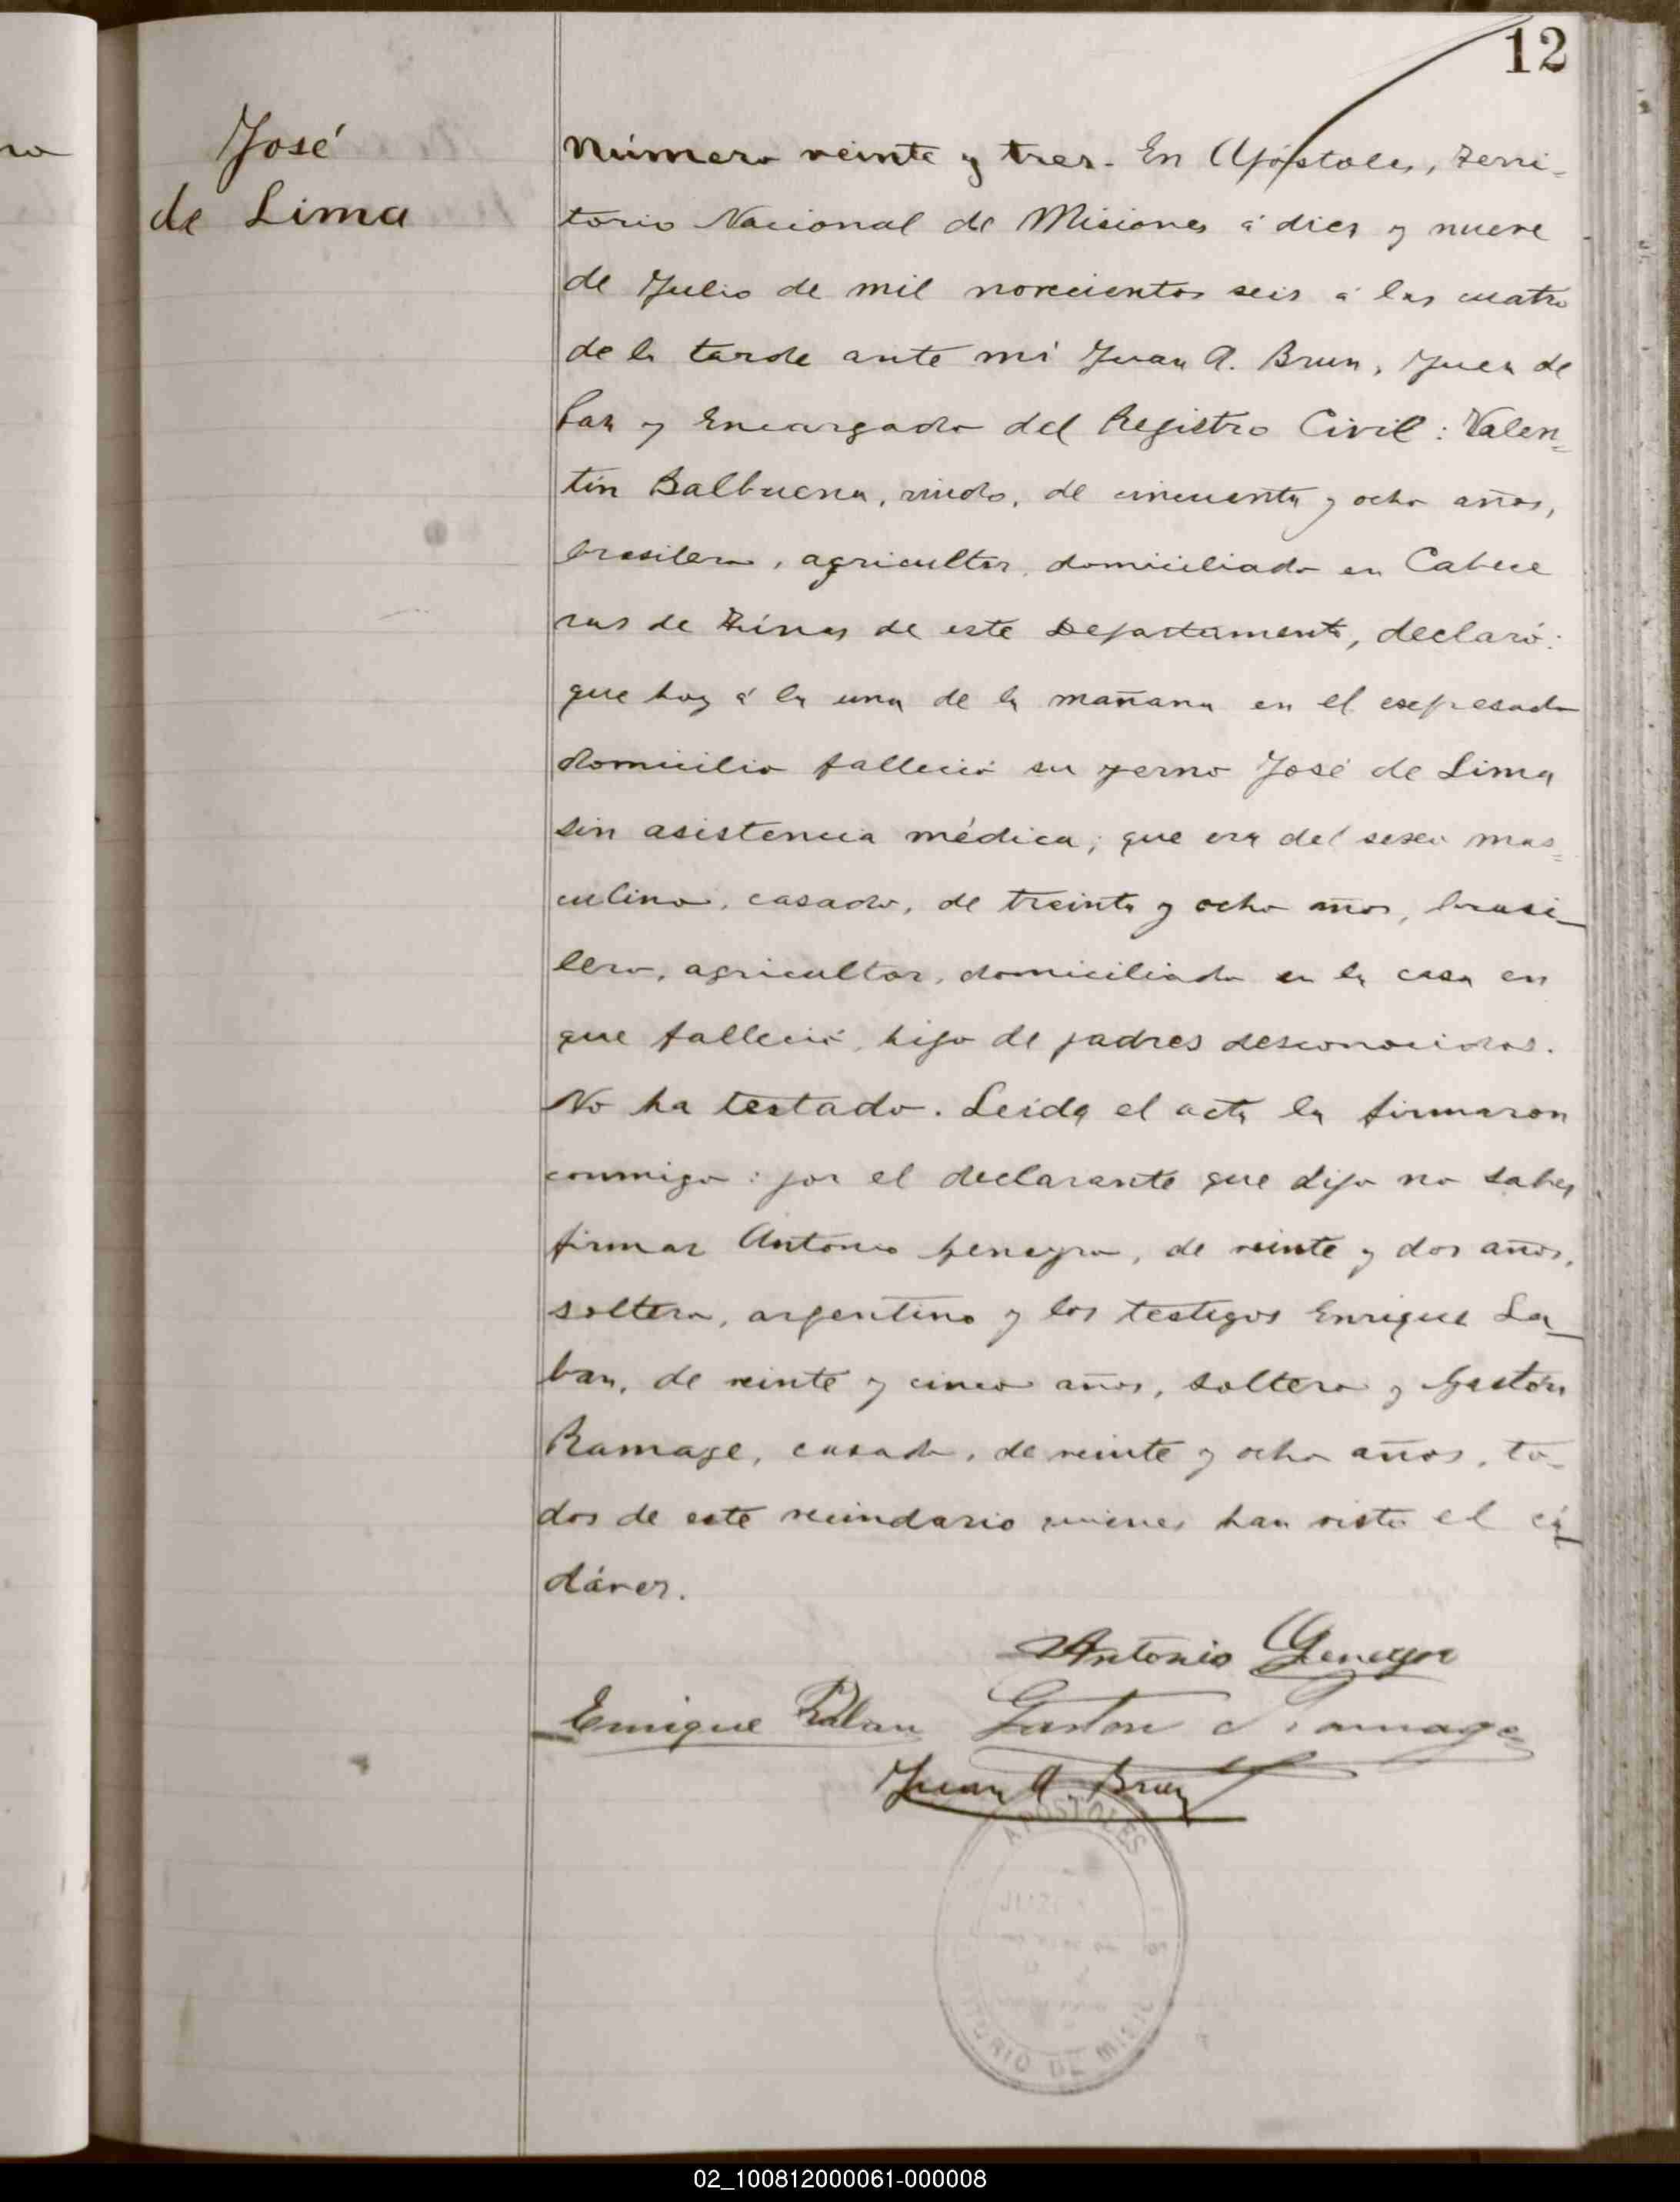 12
José
de Lima
Número veinte y tres. En Apóstoles, Terri-
torio Nacional de Misiones á diez y nueve
de Julio de mil novecientos seis á las cuatro
de la tarde ante mi Juan A. Brun, Juez de
Paz y Encargado del Registro Civil: Valen=
tín Balbuena, viudo, de cincuenta y ocho años,
brasilero, agricultor, domiciliado en Cabece
ras de de este Departamento, declaró:
que hoy á la una de la mañana en el expresado
domicilio falleció su yerno José de Lima
sin asistencia médica; que era del sexo mas=
culino, casado, de treinta y ocho años, brasi-
lero, agricultor, domiciliado en la casa en
que falleció, hijo de padres desconocidos.
No ha testado. Leida el acta la firmaron
conmigo: por el declarante que dijo no saber
firmar Antonio Geneyro, de veinte y dos años,
soltero, argentino y los testigos Enrique La-
ban, de veinte y cinco años, soltero y Gastón
Ramage, casado, de veinte y ocho años, to-
dos de este vecindario quienes han visto el ca-
dáver.
Antonio Geneyro
Enrique Gaston Ramage
Juan A. Brun
APOSTOLES
TORIO DE MISIO
02_100812000061-000008